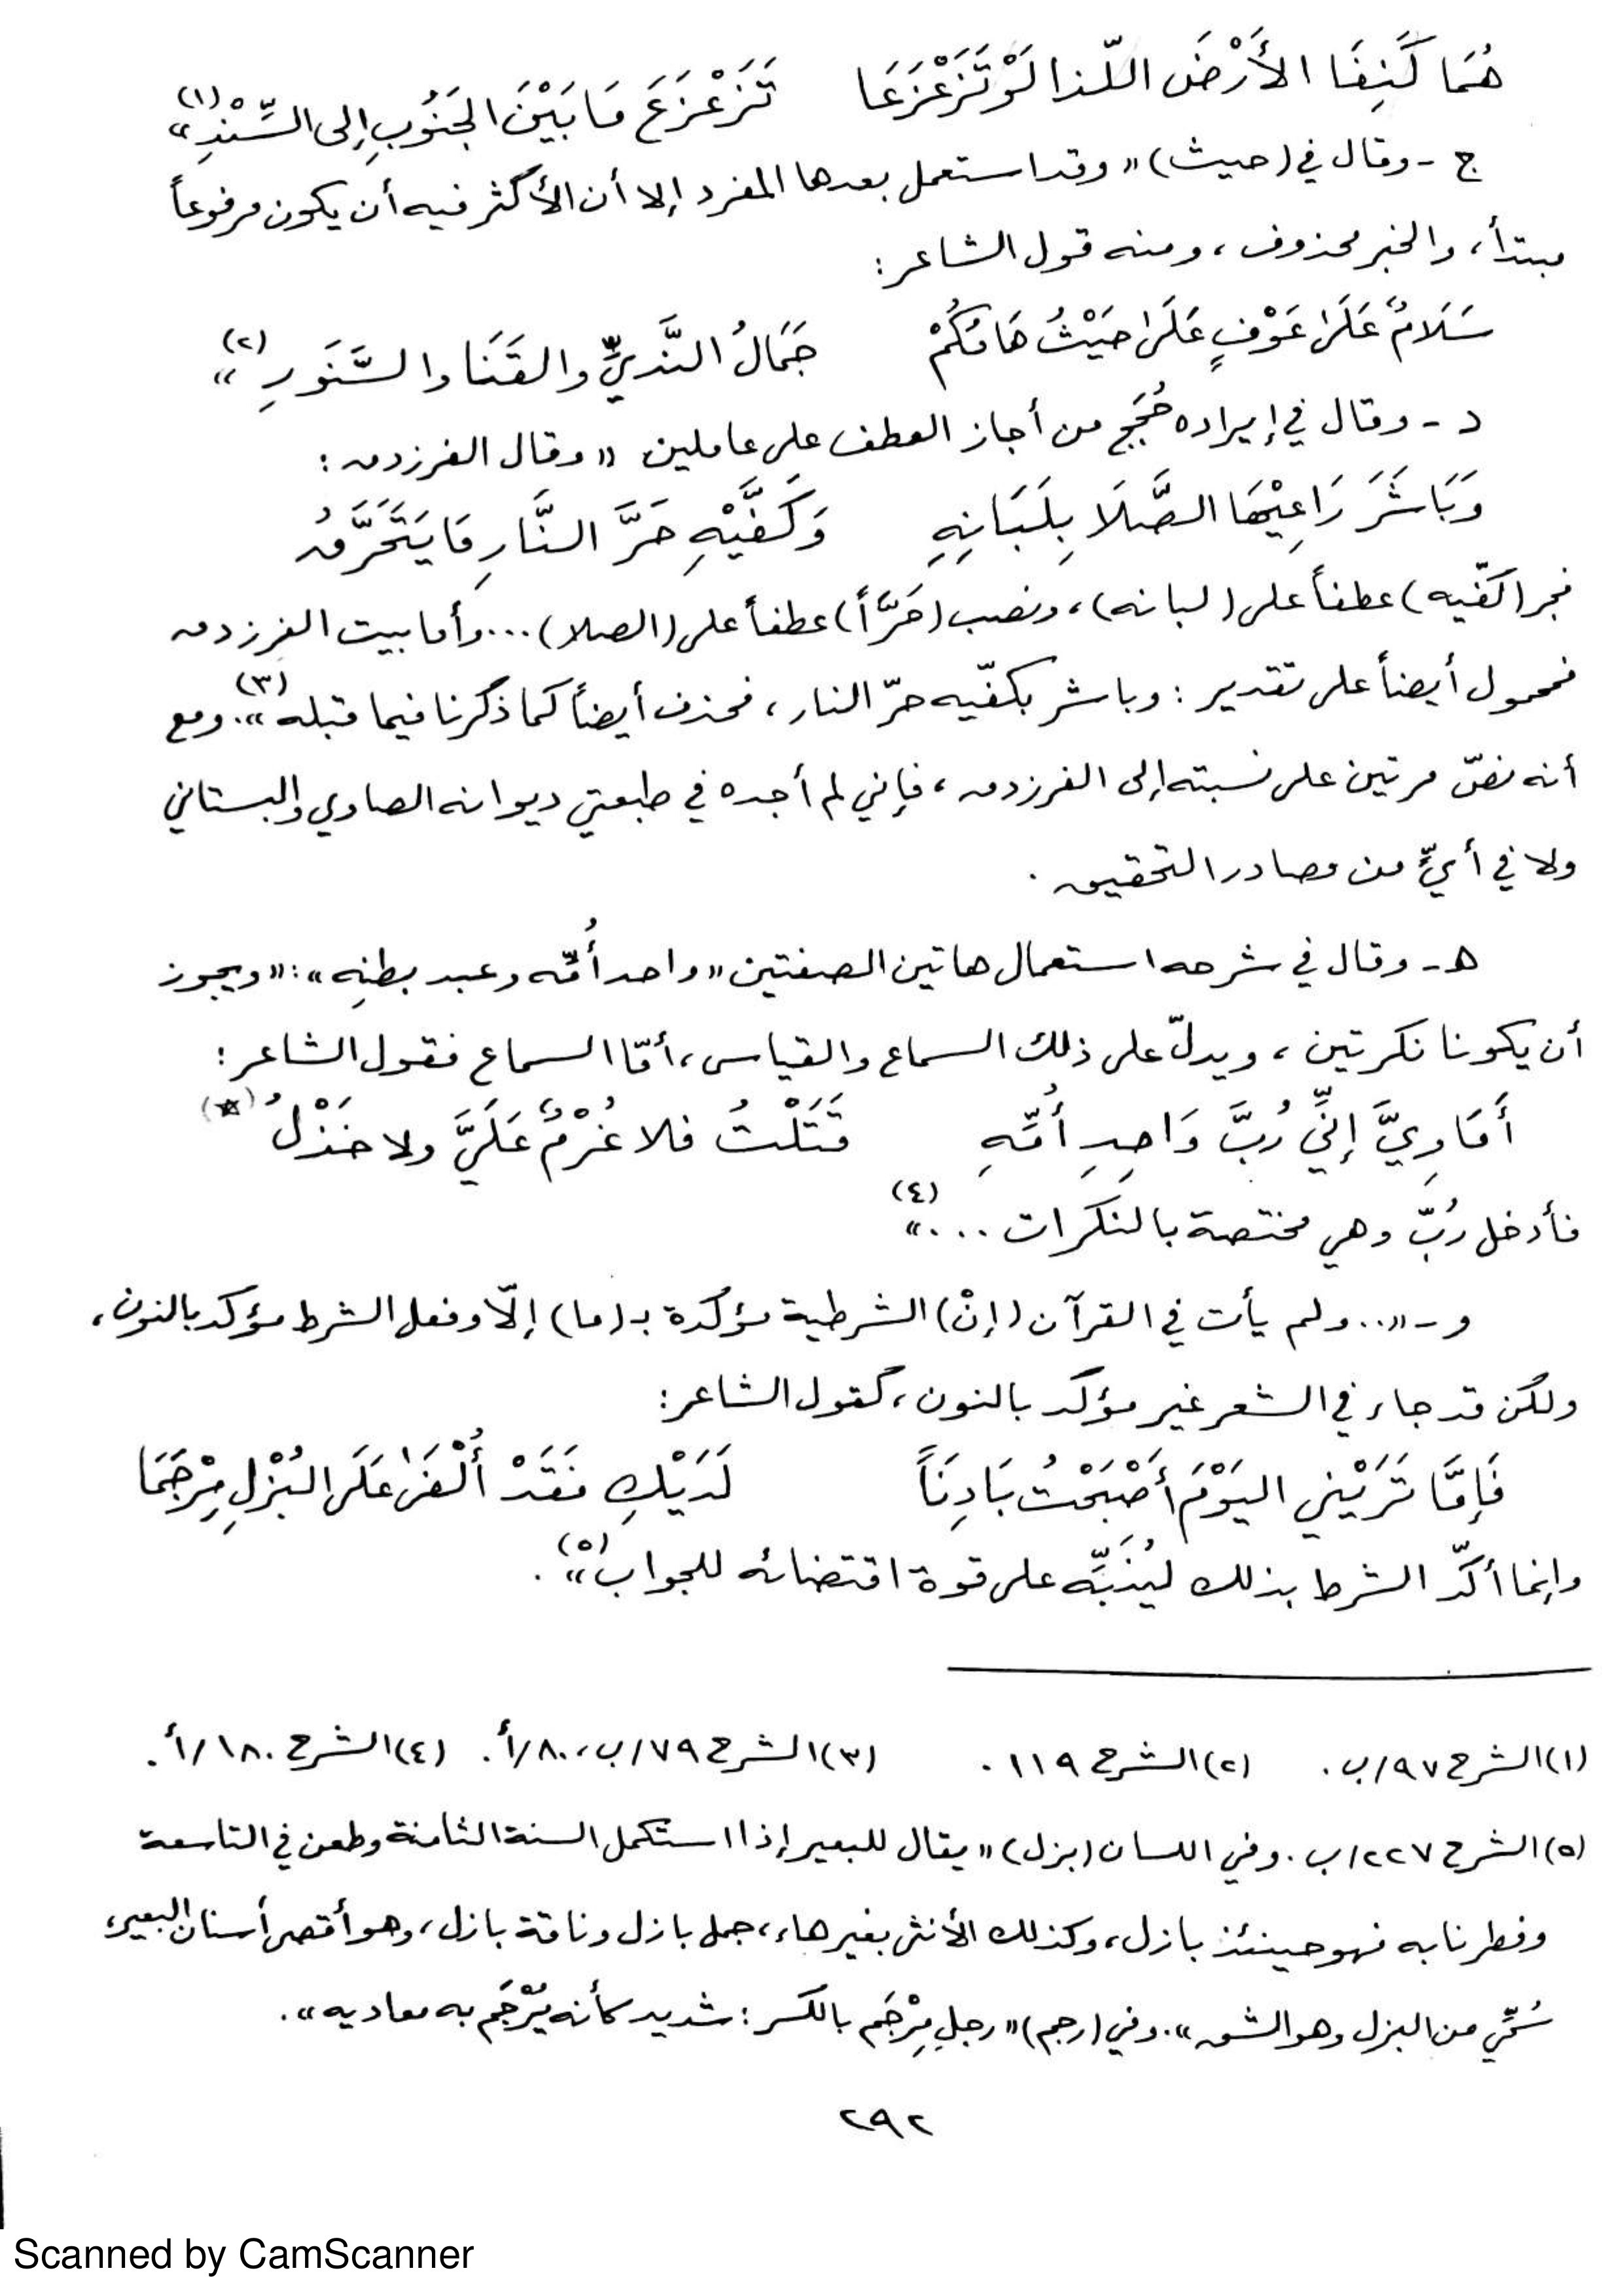 هُمَا كَنِفَا الأَرْضَ اللّذا لَوْ تَزَعْزَعَا تَزَعْزَعَ مَا بَيْنَ الجَنُوبِ إلى السِّنْدِ»(١)
ج - وقال في (حيث) «وقد استعمل بعدها المفرد إلا أن الأكثر فيه أن يكون مرفوعاً
مبتدأ، والخبر محذوف، ومنه قول الشاعر:
سَلَامٌ عَلَى عَوْفٍ عَلَى حَيْثُ هَامُكُمْ جَمَالُ النَّدِيِّ والقَنَا والسَّنَورِ»(٢)
د - وقال في إيراده حُجَج من أجاز العطف على عاملين «وقال الفرزدق:
وَبَاشَرَ رَاعِيْهَا الصَّلَا بِلَبَانِهِ وَكَفَّيْهِ حَرَّ النَّارِ مَا يَتَحَرَّقُ
فجر (كفّيه) عطفاً على (لبانه)، ونصب (حَرَّاً) عطفاً على (الصلا)...وأما بيت الفرزدق
فمحمول أيضاً على تقدير: وباشر بكفّيه حرّ النار، فحذف أيضاً كما ذكرنا فيما قبله»(٣). ومع
أنه نصّ مرتين على نسبته إلى الفرزدق، فإني لم أجده في طبعتي ديوانه الصاوي والبستاني
ولا في أيٍّ من مصادر التحقيق.
هـ - وقال في شرحه استعمال هاتين الصفتين «واحد أُمِّه وعبد بطنِه»: «ويجوز
أن يكونا نكرتين، ويدلّ على ذلك السماع والقياس، أمّا السماع فقول الشاعر:
أَمَاوِيَّ إنِّي رُبَّ وَاحِدِ أُمِّهِ قَتَلْتُ فلا غُرْمٌ عَلَيَّ ولا خَذْلُ(*)
فأدخل رُبّ وهي مختصة بالنكرات ...»(٤)
و - «.. ولم يأت في القرآن (إنْ) الشرطية مؤكدة بـ (ما) إلّا وفعل الشرط مؤكد بالنون،
ولكن قد جاء في الشعر غير مؤكد بالنون، كقول الشاعر:
فَإمَّا تَرَيْنِي اليَوْمَ أَصْبَحْتُ بَادِنَاً لَدَيْكِ فَقَدْ أُلْفَى عَلَى البُزْلِ مِرْجَمَا
وإنما أكّد الشرط بذلك ليُنَبِّه على قوة اقتضائه للجواب»(٥).
(١) الشرح ٩٧/ب. (٢) الشرح ١١٩. (٣) الشرح ٧٩/ب، ٨٠/أ. (٤) الشرح ١٨٠/أ.
(٥) الشرح ٢٢٧/ب. وفي اللسان (بزل) «يقال للبعير إذا استكمل السنة الثامنة وطعن في التاسعة
وفطر نابه فهو حينئذ بازل، وكذلك الأنثى بغير هاء، جمل بازل وناقة بازل، وهو أقصى أسنان البعير،
سُمِّي من البزل وهو الشق». وفي (رجم) «رجل مِرْجَم بالكسر: شديد كأنه يُرْجَم به معاديه».
٢٩٢
Scanned by CamScanner